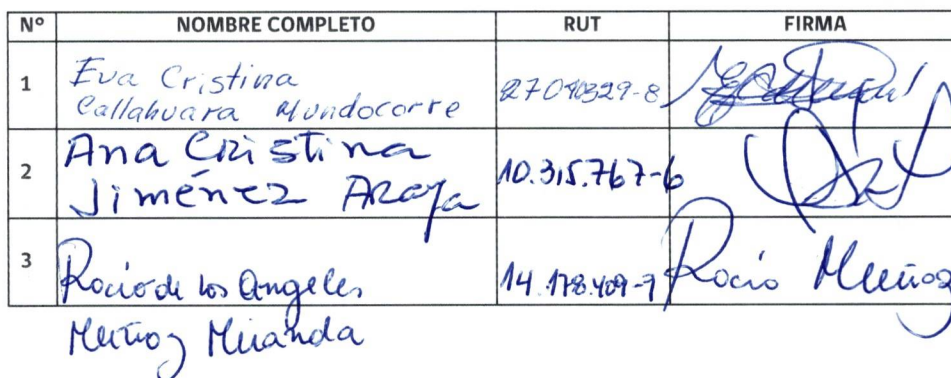 N° NOMBRE COMPLETO RUT FIRMA
1 Eva Cristina
Callahuara Mundocorre 27040329-8
2 Ana Cristina
Jiménez Araya 10.315.767-6
3 Rocio de los Angeles 14.178.409-7 Rocio Muñoz
Muñoz Miranda